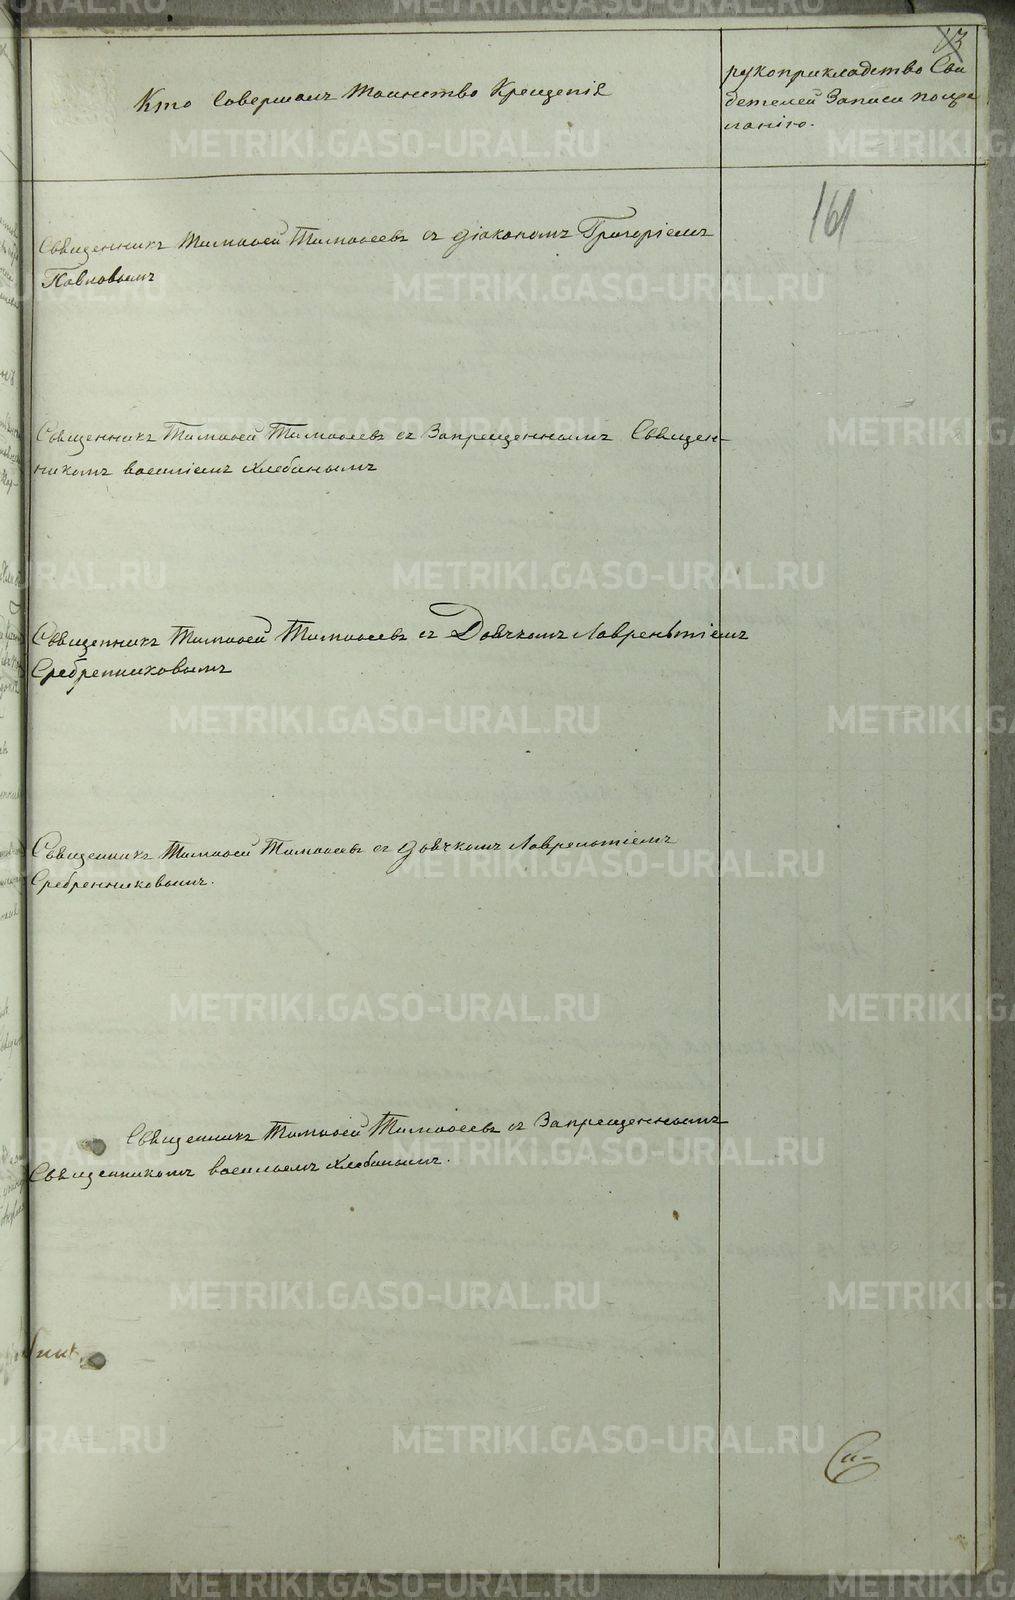 13
Кто Совершалъ Таинство Крещенія
рукоприкладство Сви
детелей Записи по же
ланію.
161
Священникъ Тимофей Тимофеевъ съ діакономъ Григоріемъ
Павловымъ
Священникъ Тимофей Тимофеевъ съ Запрещеннымъ Священ-
никомъ василіемъ Хлебинымъ
Священникъ Тимофей Тимофеевъ съ Дьячкомъ Лаврентіемъ
Сребренниковымъ
Священникъ Тимофей Тимофеевъ съ дьячкомъ Лаврентіемъ
Сребренниковымъ.
Священникъ Тимофей Тимофеевъ съ Запрещеннымъ
Священникомъ васильемъ Хлебинымъ.
METRIKI.GASO-URAL.RU